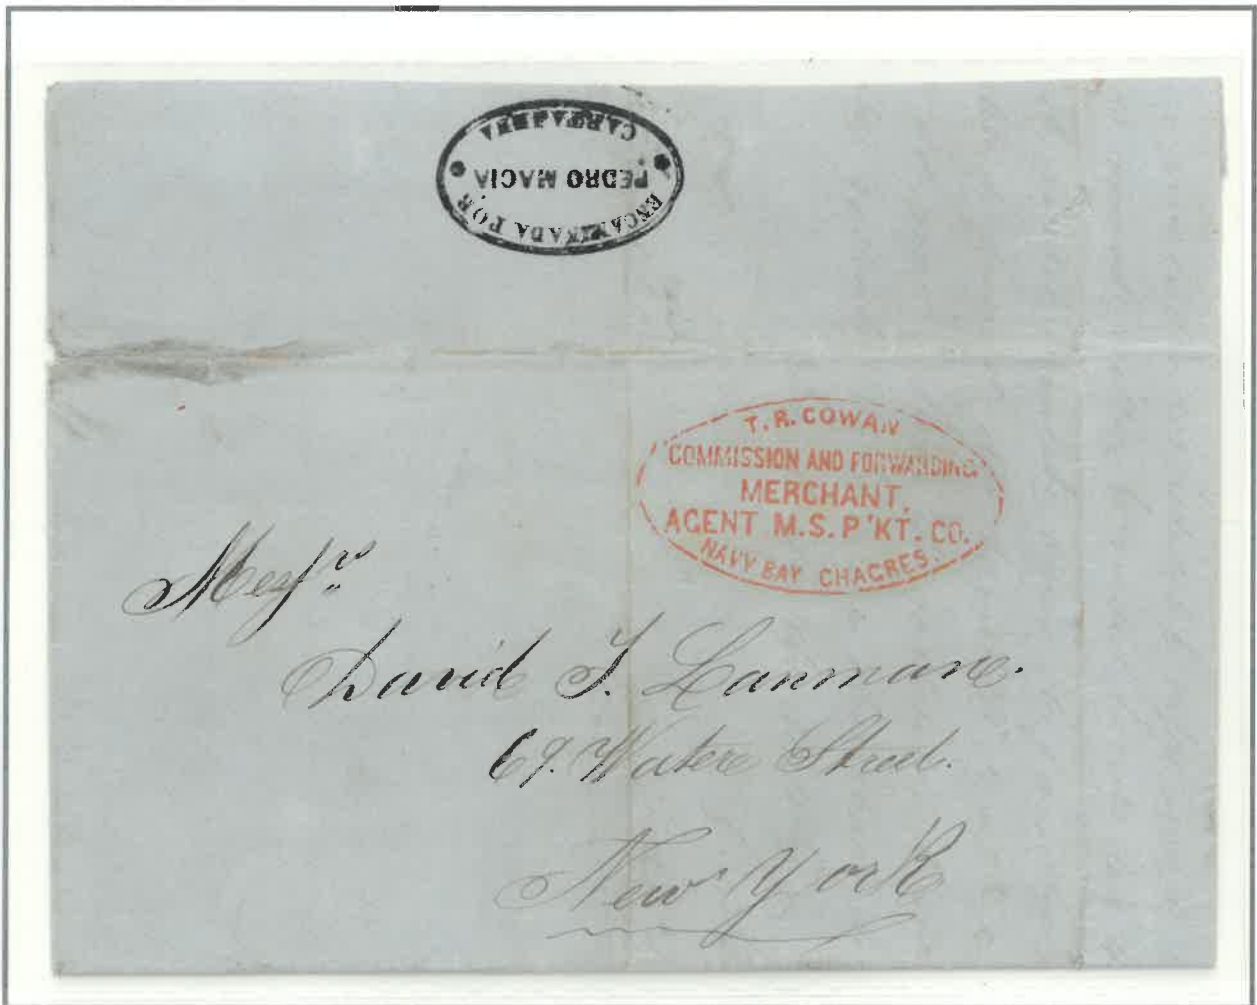 ENCAMINADA POR
PEDRO MACIA
CARTAJENA
T. R. COWAN
COMMISSION AND FORWARDING
MERCHANT,
AGENT M.S.P'KT. CO.
NAVY BAY CHAGRES.
Messrs
David T. Lanman.
69. Water Street.
New York